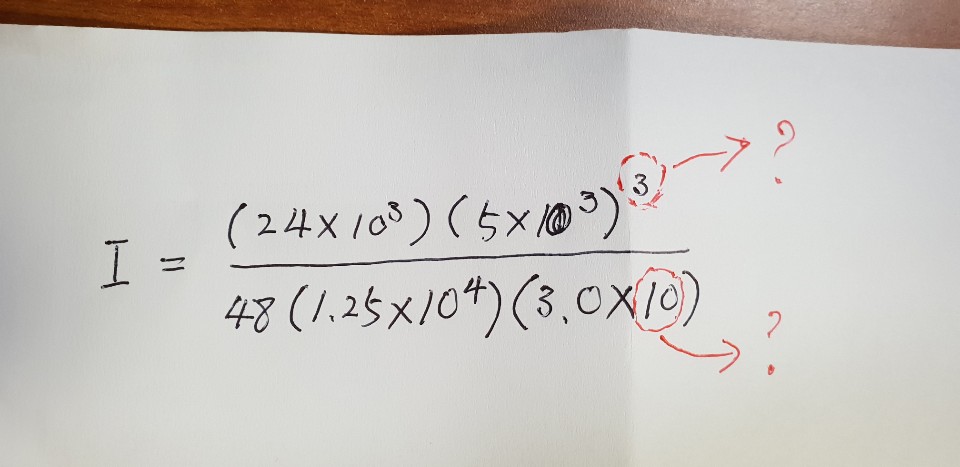 ?
I = (24×10³)(5×10³)³ / 48(1.25×10⁴)(3.0×10)
?